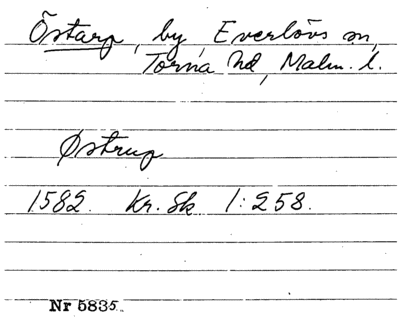 Östarp, by, Everlövs sn,
Torna hd, Malm. l.
Østrup
1582. Kr. Sk 1:258.
Nr 5835